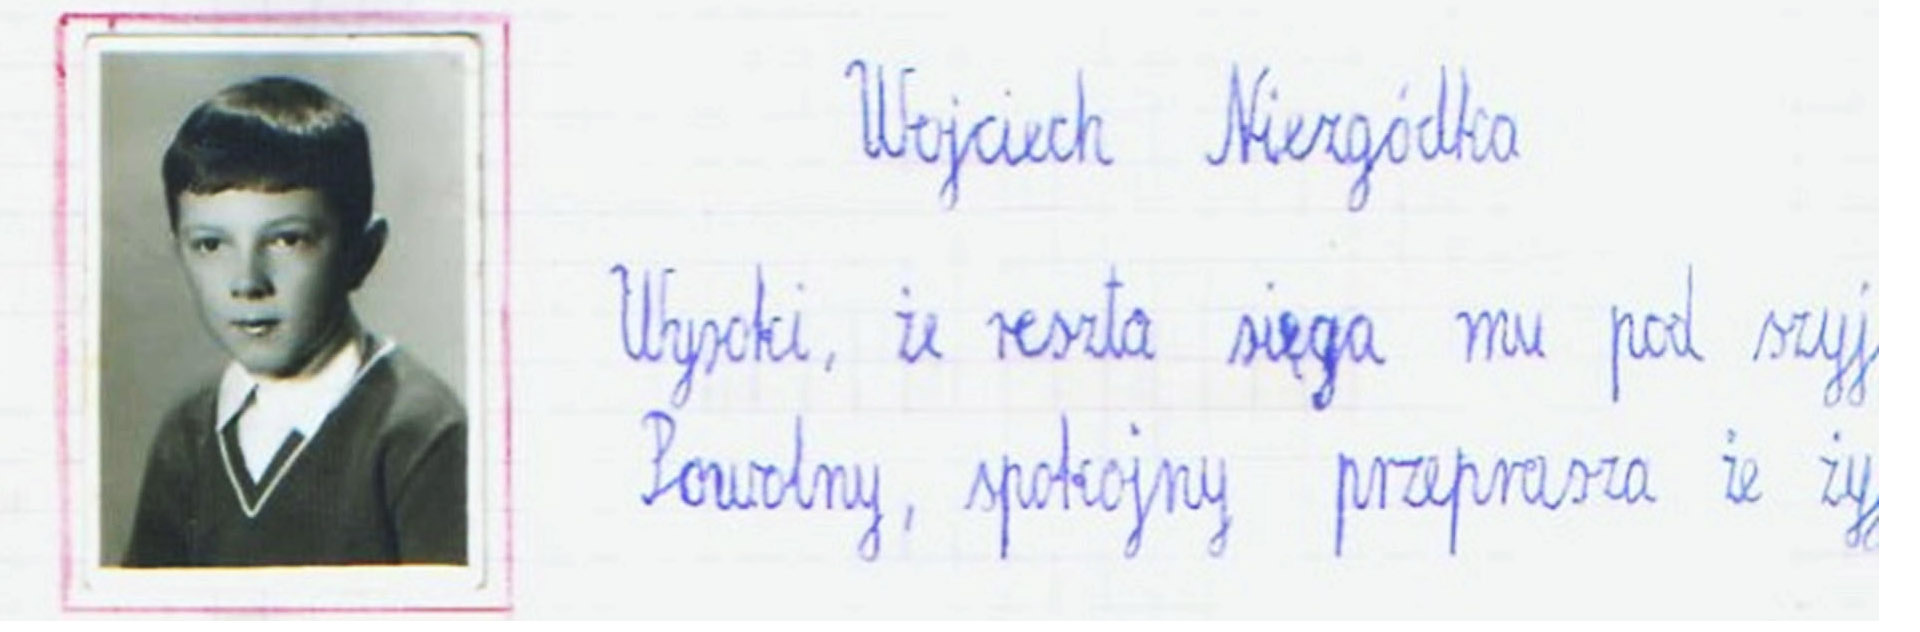 Wojciech Niezgódka
Wysoki, że reszta sięga mu pod
Powolny, spokojny przeprasza że